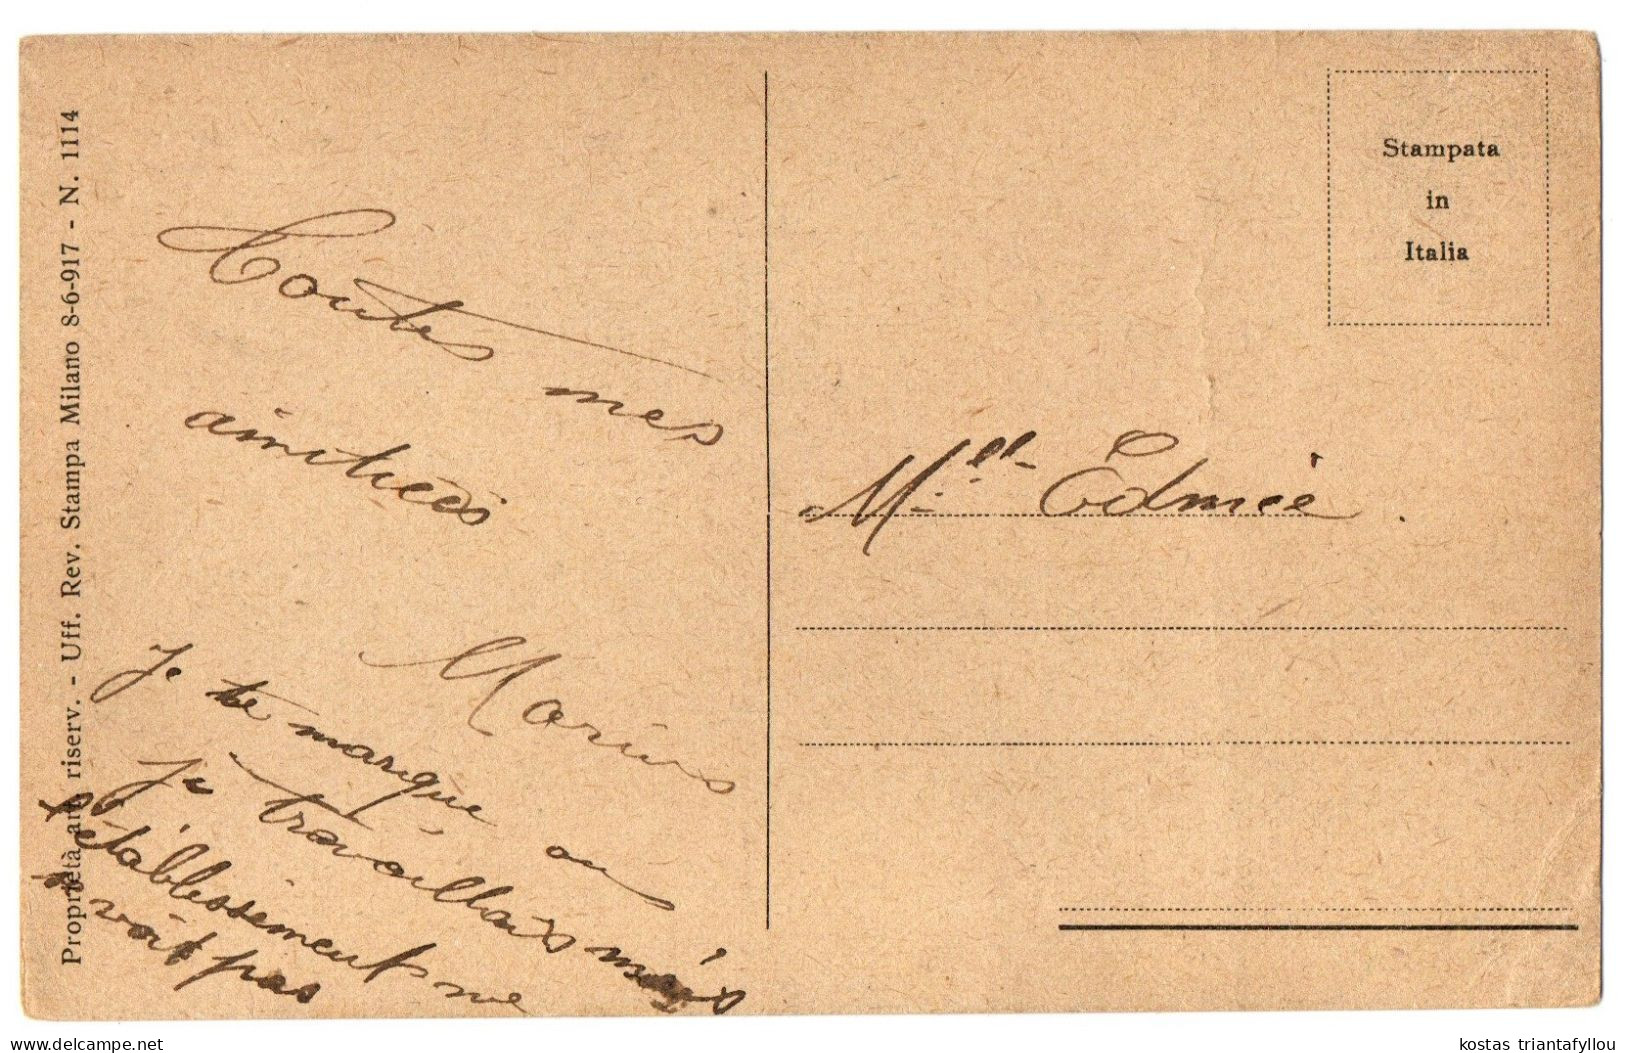 Proprietà art. riserv. - Uff. Rev. Stampa Milano 8-6-917 - N. 1114
Toutes mes
amitiées
Marius
Je te marque ou
Je travaillais mais
l'établessément ne
voit pas
Stampata
in
Italia
Mlle Edmée.
delcampe.net
kostas triantafyllou